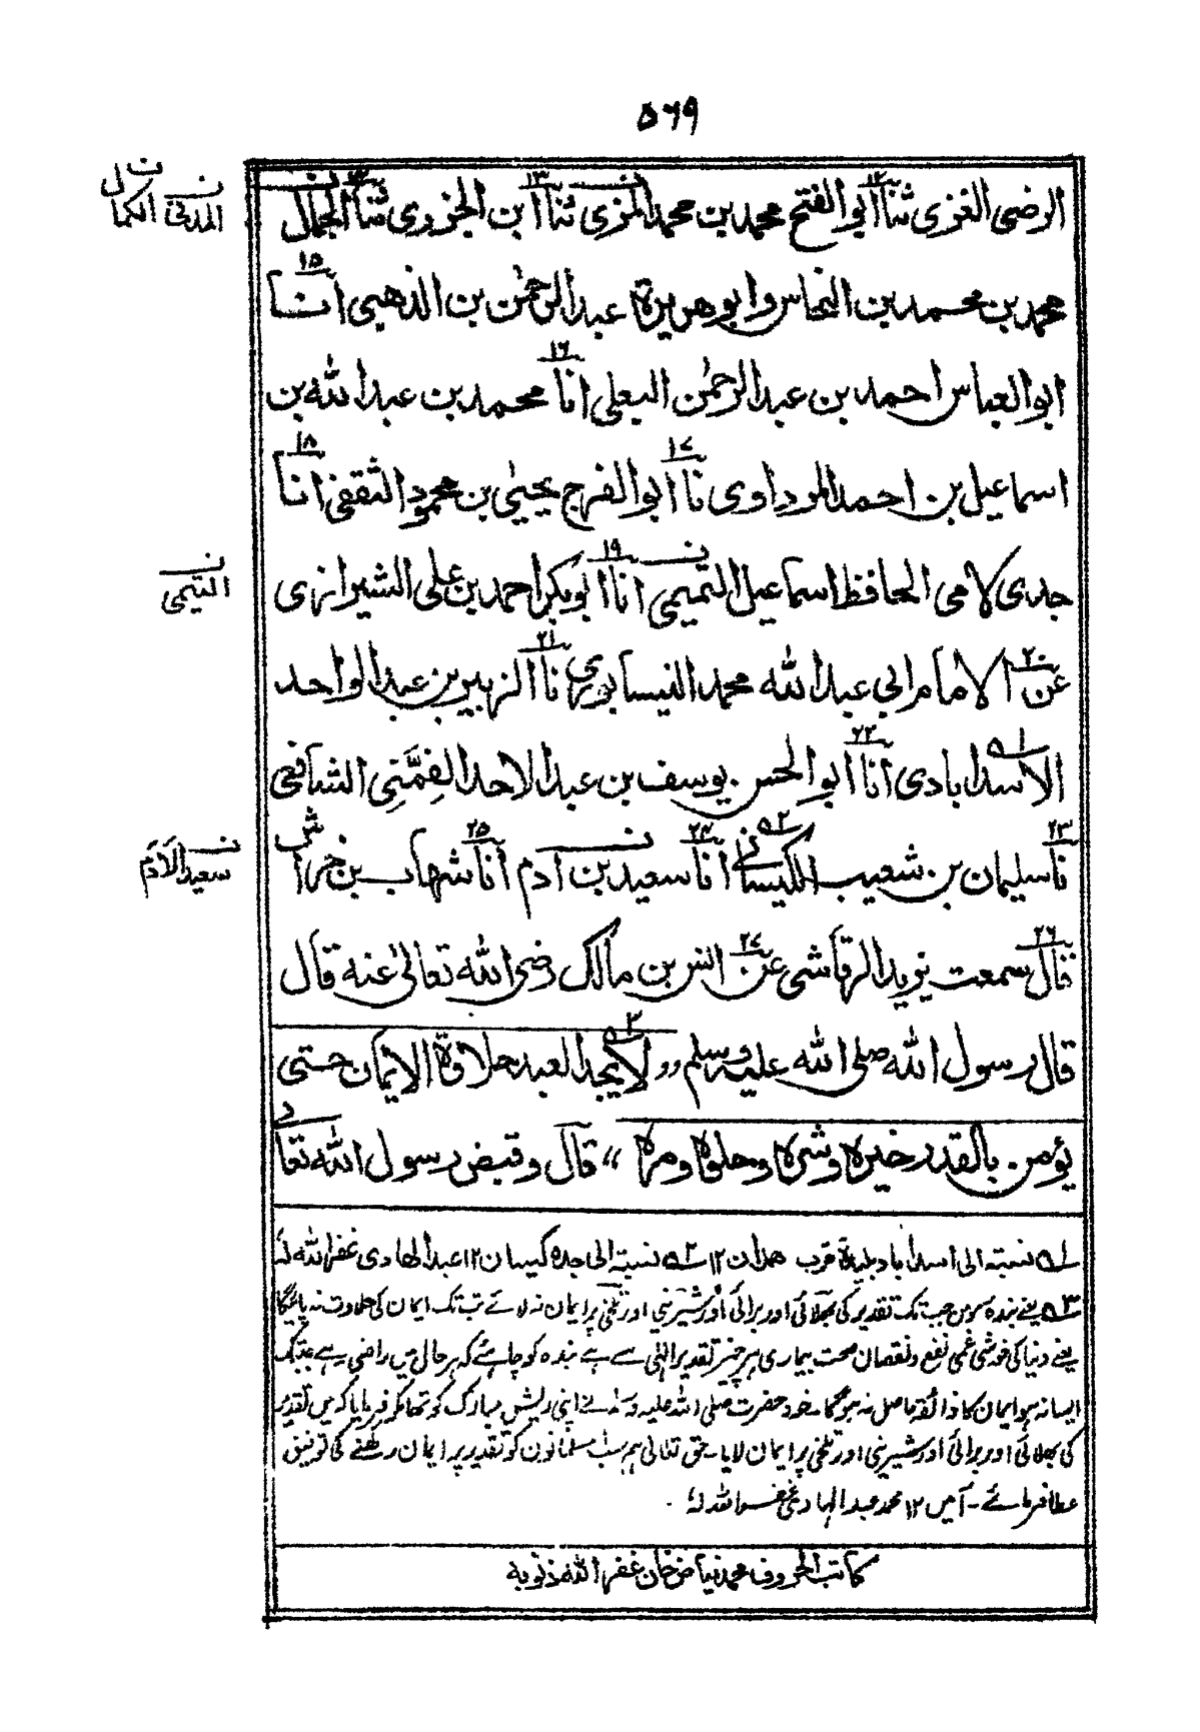 ۵۶۹
الرضی الغزی ثنا ابوالفتح محمد بن محمد المزی ثنا ابن الجزری ثنا الجمال
۱۲ ۱۳ ۱۴ ن ن
المدنی ن الکمال ن
محمد بن محمد بن النحاس وابوهریرة عبدالرحمٰن بن الذهبی انا
۱۵
ابوالعباس احمد بن عبدالرحمٰن البعلی انا محمد بن عبدالله بن
۱۶
اسماعیل بن احمد المرداوی نا ابوالفرج یحییٰ بن محمود الثقفی انا
۱۷ ۱۸
جدی لامی الحافظ اسماعیل التمیمی انا ابوبکر احمد بن علی الشیرازی
۱۹ ن
التیمی ن
عن الامام ابی عبدالله محمد النیسابوری نا الزبیر بن عبدالواحد
۲۰ ۲۱
الاسدابادی انا ابوالحسن یوسف بن عبدالاحد القِمَّنِی الشافعی
۱؎ ۲۲
نا سلیمان بن شعیب الکیسانی انا سعید بن ادم انا شهاب بن خراش
۲۳ ۲؎ ۲۴ ن ۲۵
سعید الآدَم ن
قال سمعت یزید الرقاشی عن انس بن مالک رضی الله تعالیٰ عنه قال
۲۶ ۲۷
قال رسول الله صلی الله علیه وسلم ,, لا یجد العبد حلاوة الایمان حتی
۳؎
یؤمن بالقدر خیره وشره وحلوه ومره ،، قال وقبض رسول الله تعالی
۱؎ نسبتہ الی اسداباد بلیدة قرب همدان ۱۲ ۲؎ نسبتہ الی جده کیسان ۱۲ عبدالهادی غفر الله له
۳؎ یعنے بندہ مومن جب تک تقدیر کی بھلائی اور برائی اور شیرینی اور تلخی پر ایمان نہ لائے تب تک ایمان کی حلاوت نہ پائیگا
یعنے دنیا کی خوشی غمی نفع ونقصان صحت بیماری ہر چیز تقدیر الٰہی سے ہے بندہ کو چاہئے کہ ہر حال میں راضی رہے جبتک
ایسا نہ ہو ایمان کا ذائقہ حاصل نہ ہوگا۔ خود حضرت صلی اللہ علیہ وسلم نے اپنی ریش مبارک کو تھامکر فرمایا کہ میں تقدیر
کی بھلائی اور برائی اور شیرینی اور تلخی پر ایمان لایا۔ حق تعالیٰ ہم سب مسلمانوں کو تقدیر پر ایمان رکھنے کی توفیق
عطا فرمائے۔ آمین ۱۲ محمد عبدالہادی غفر اللہ لہٗ
کاتب الحروف محمد نیاض خان غفر الله ذنوبه